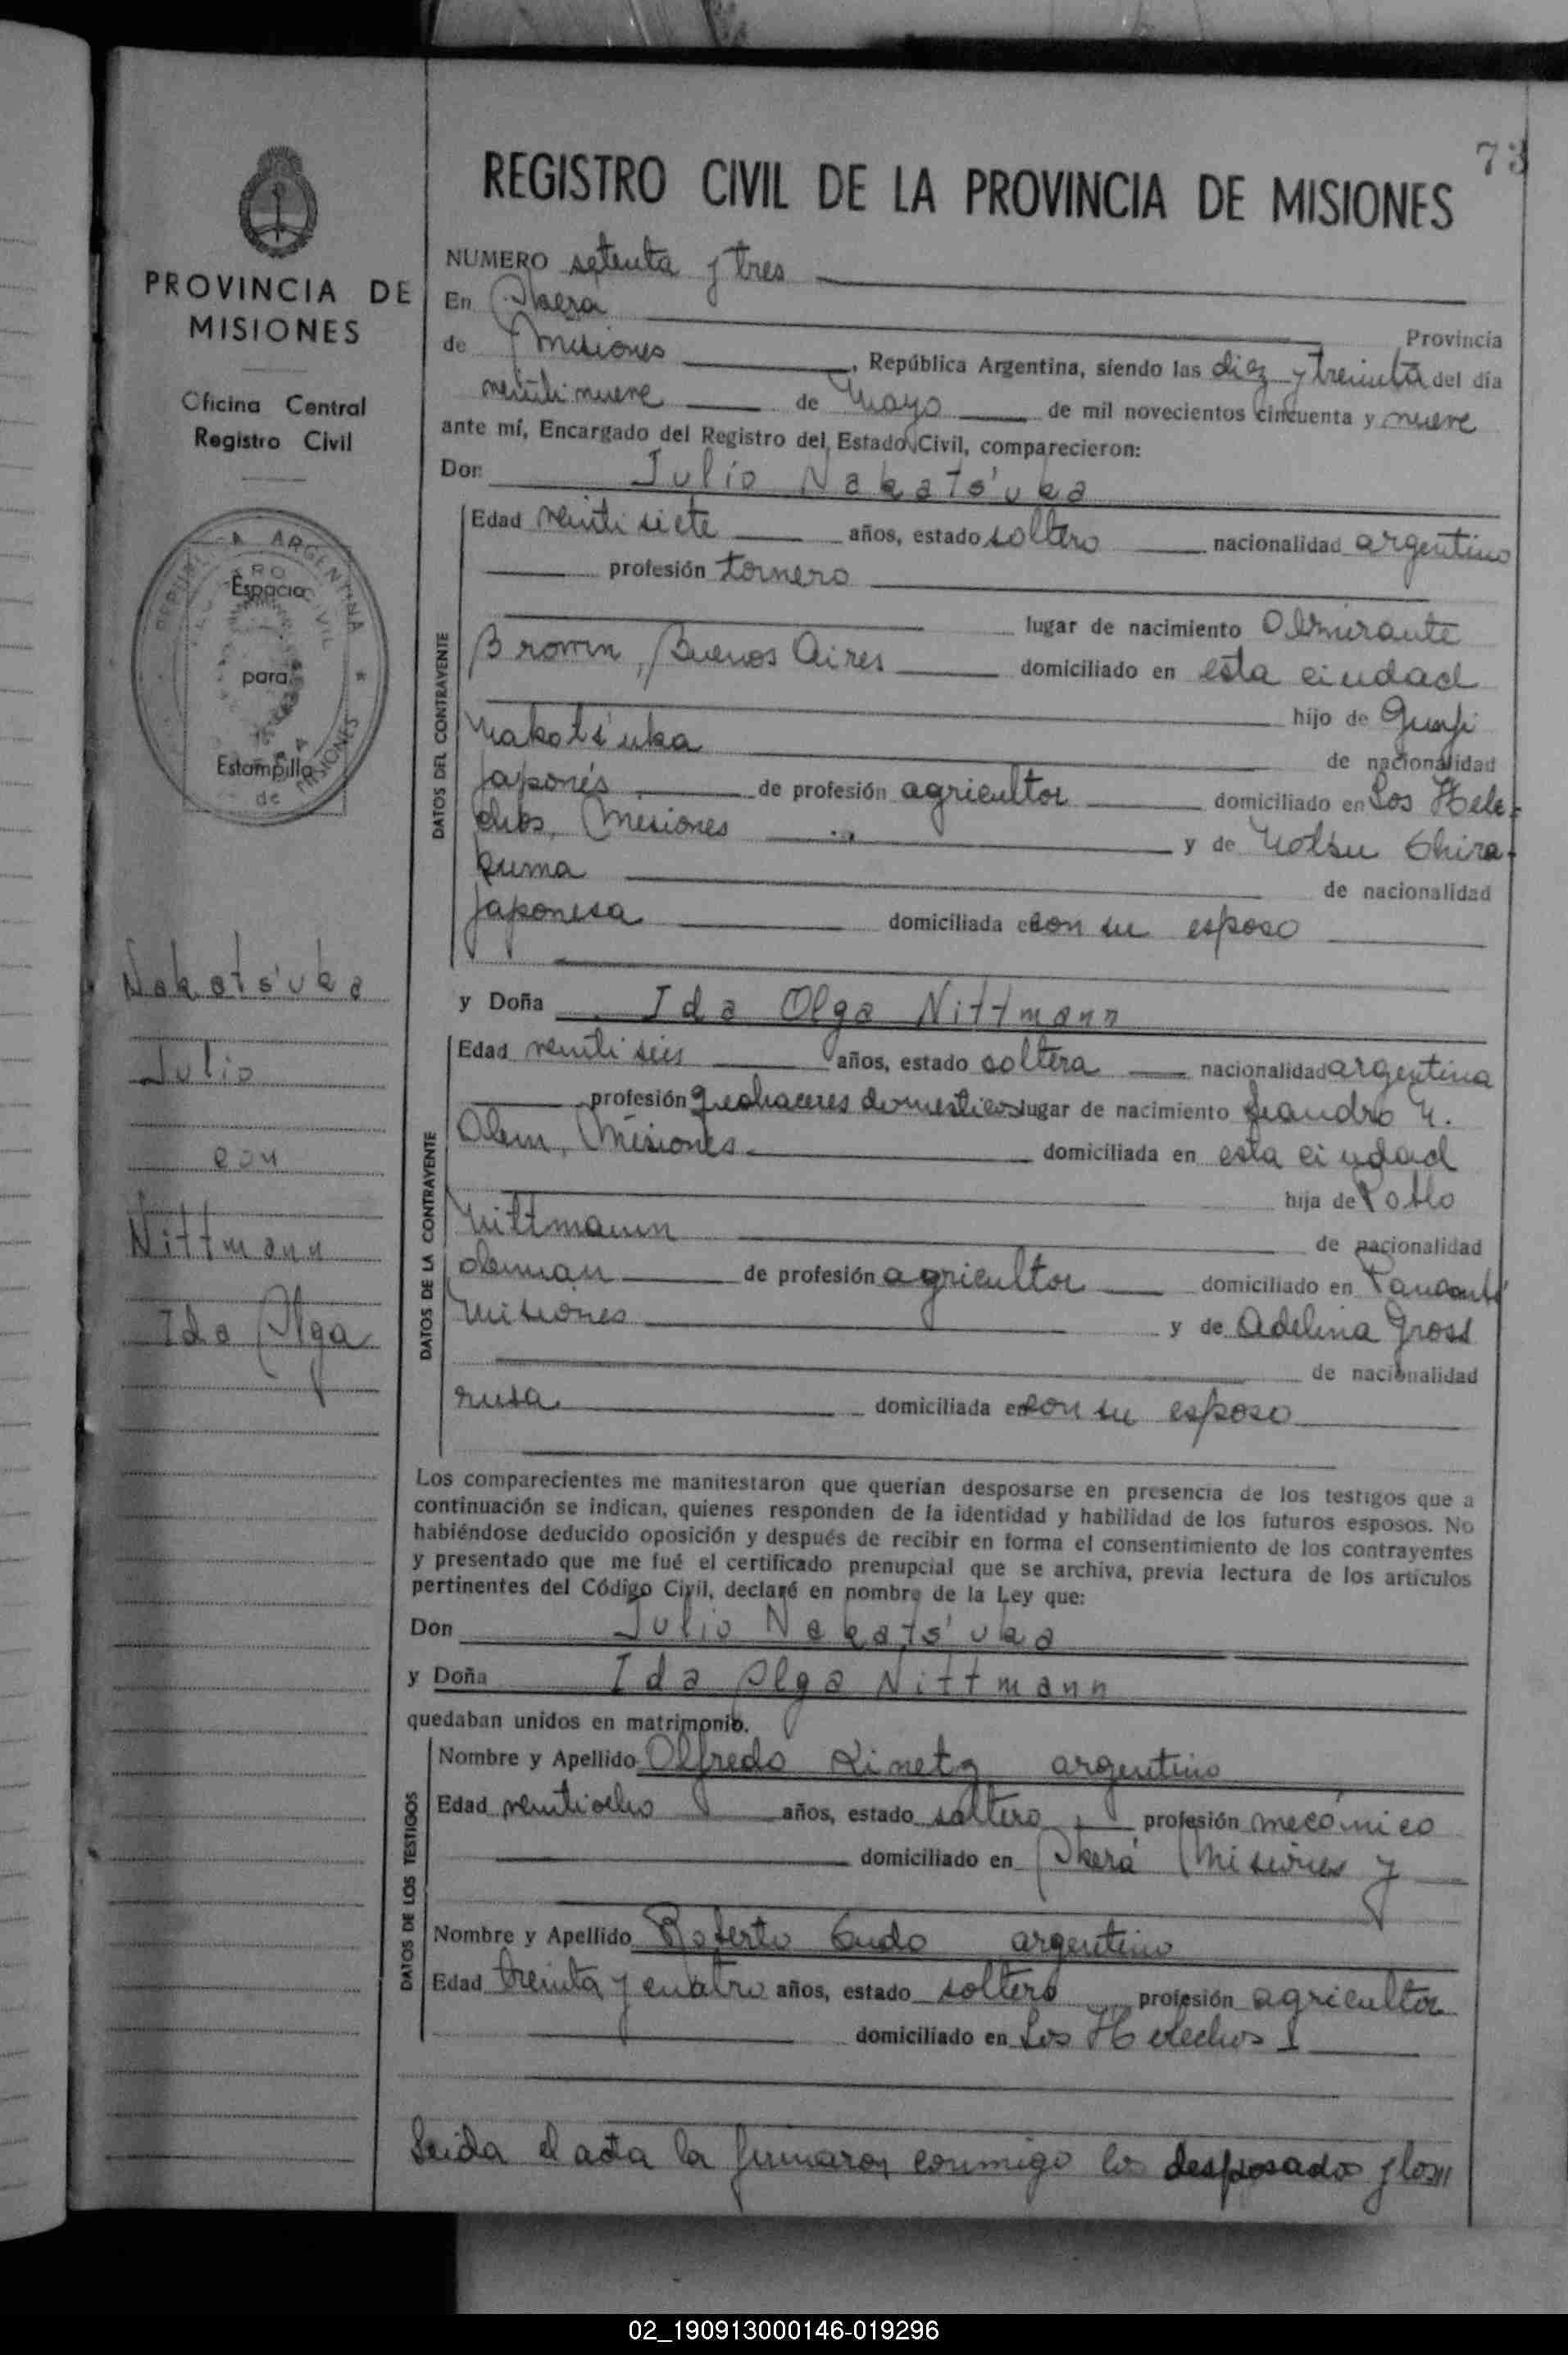 73
REGISTRO CIVIL DE LA PROVINCIA DE MISIONES
PROVINCIA DE
MISIONES
Oficina Central
Registro Civil
REPUBLICA ARGENTINA
Espacio
para
Estampilla
de MISIONES
Nakats'uka
Julio
con
Nittmann
Ida Olga
NUMERO setenta y tres
En Oberá Provincia
de Misiones, República Argentina, siendo las diez y treinta del día
veintinueve de Mayo de mil novecientos cincuenta y nueve
ante mí, Encargado del Registro del Estado Civil, comparecieron:
Don Julio Nakats'uka
DATOS DEL CONTRAYENTE
Edad veintisiete años, estado soltero nacionalidad argentino
profesión tornero
lugar de nacimiento Almirante
Brown, Buenos Aires domiciliado en esta ciudad
hijo de Gunji
Nakats'uka de nacionalidad
japonés de profesión agricultor domiciliado en Los Hele-
chos, Misiones y de
kuma de nacionalidad
japonesa domiciliada con su esposo
y Doña Ida Olga Nittmann
DATOS DE LA CONTRAYENTE
Edad veintiseis años, estado soltera nacionalidad argentina
profesión quehaceres domesticos lugar de nacimiento Leandro N.
Alem, Misiones domiciliada en esta ciudad
hija de Pablo
Nittmann de nacionalidad
aleman de profesión agricultor domiciliado en
Misiones y de Adelina Gross
de nacionalidad
rusa domiciliada con su esposo
Los comparecientes me manifestaron que querían desposarse en presencia de los testigos que a
continuación se indican, quienes responden de la identidad y habilidad de los futuros esposos. No
habiéndose deducido oposición y después de recibir en forma el consentimiento de los contrayentes
y presentado que me fué el certificado prenupcial que se archiva, previa lectura de los artículos
pertinentes del Código Civil, declaré en nombre de la Ley que:
Don Julio Nakats'uka
y Doña Ida Olga Nittmann
quedaban unidos en matrimonio.
DATOS DE LOS TESTIGOS
Nombre y Apellido Alfredo Kinetz argentino
Edad veintiocho años, estado soltero profesión mecánico
domiciliado en Oberá Misiones y
Nombre y Apellido Roberto Gudo argentino
Edad treinta y cuatro años, estado soltero profesión agricultor
domiciliado en Los Helechos
Leida el acta la firmaron conmigo los desposados y los
02_190913000146-019296